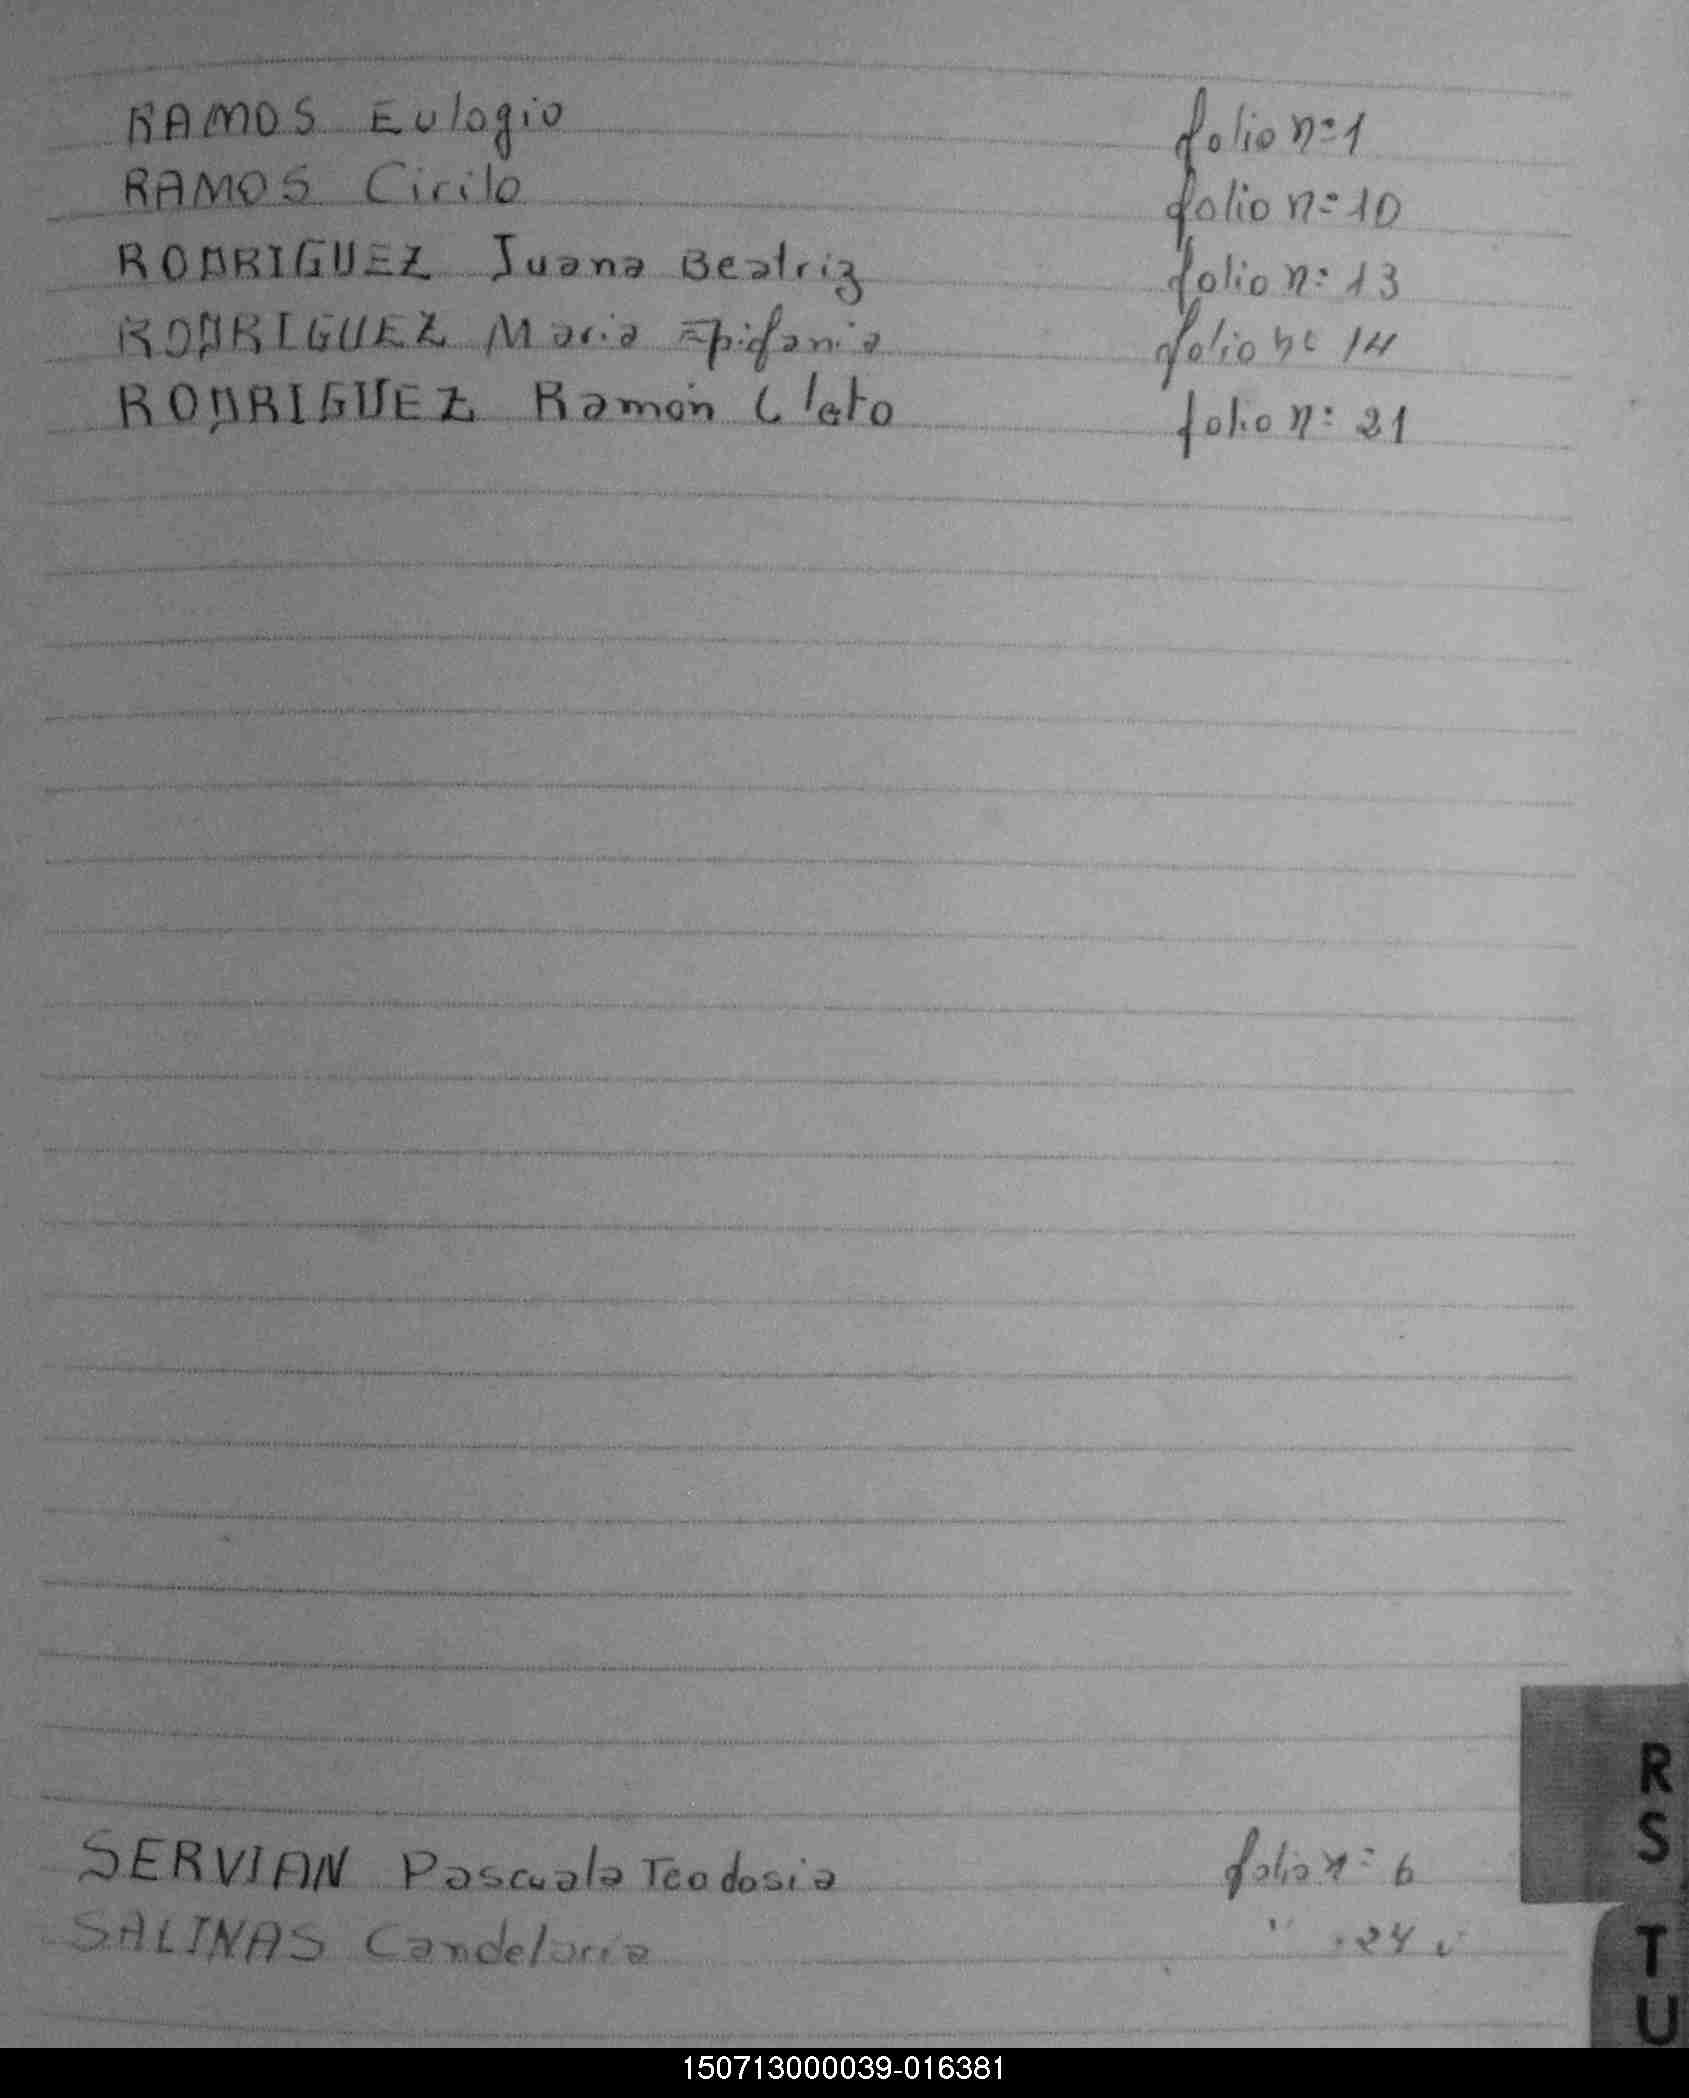 RAMOS Eulogio folio n=1
RAMOS Cirilo folio n=10
RODRIGUEZ Juana Beatriz folio n=13
RODRIGUEZ Maria Epifania folio n= 14
RODRIGUEZ Ramón Cleto folio n= 21
R
S
SERVIAN Pascuala Teodosia folio n= 6
SALINAS Candelaria " 24 v
T
U
150713000039-016381